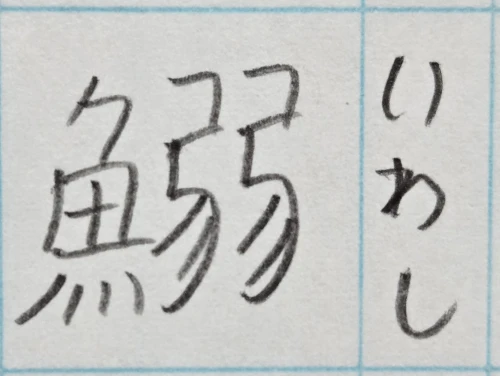 鰯
いわし